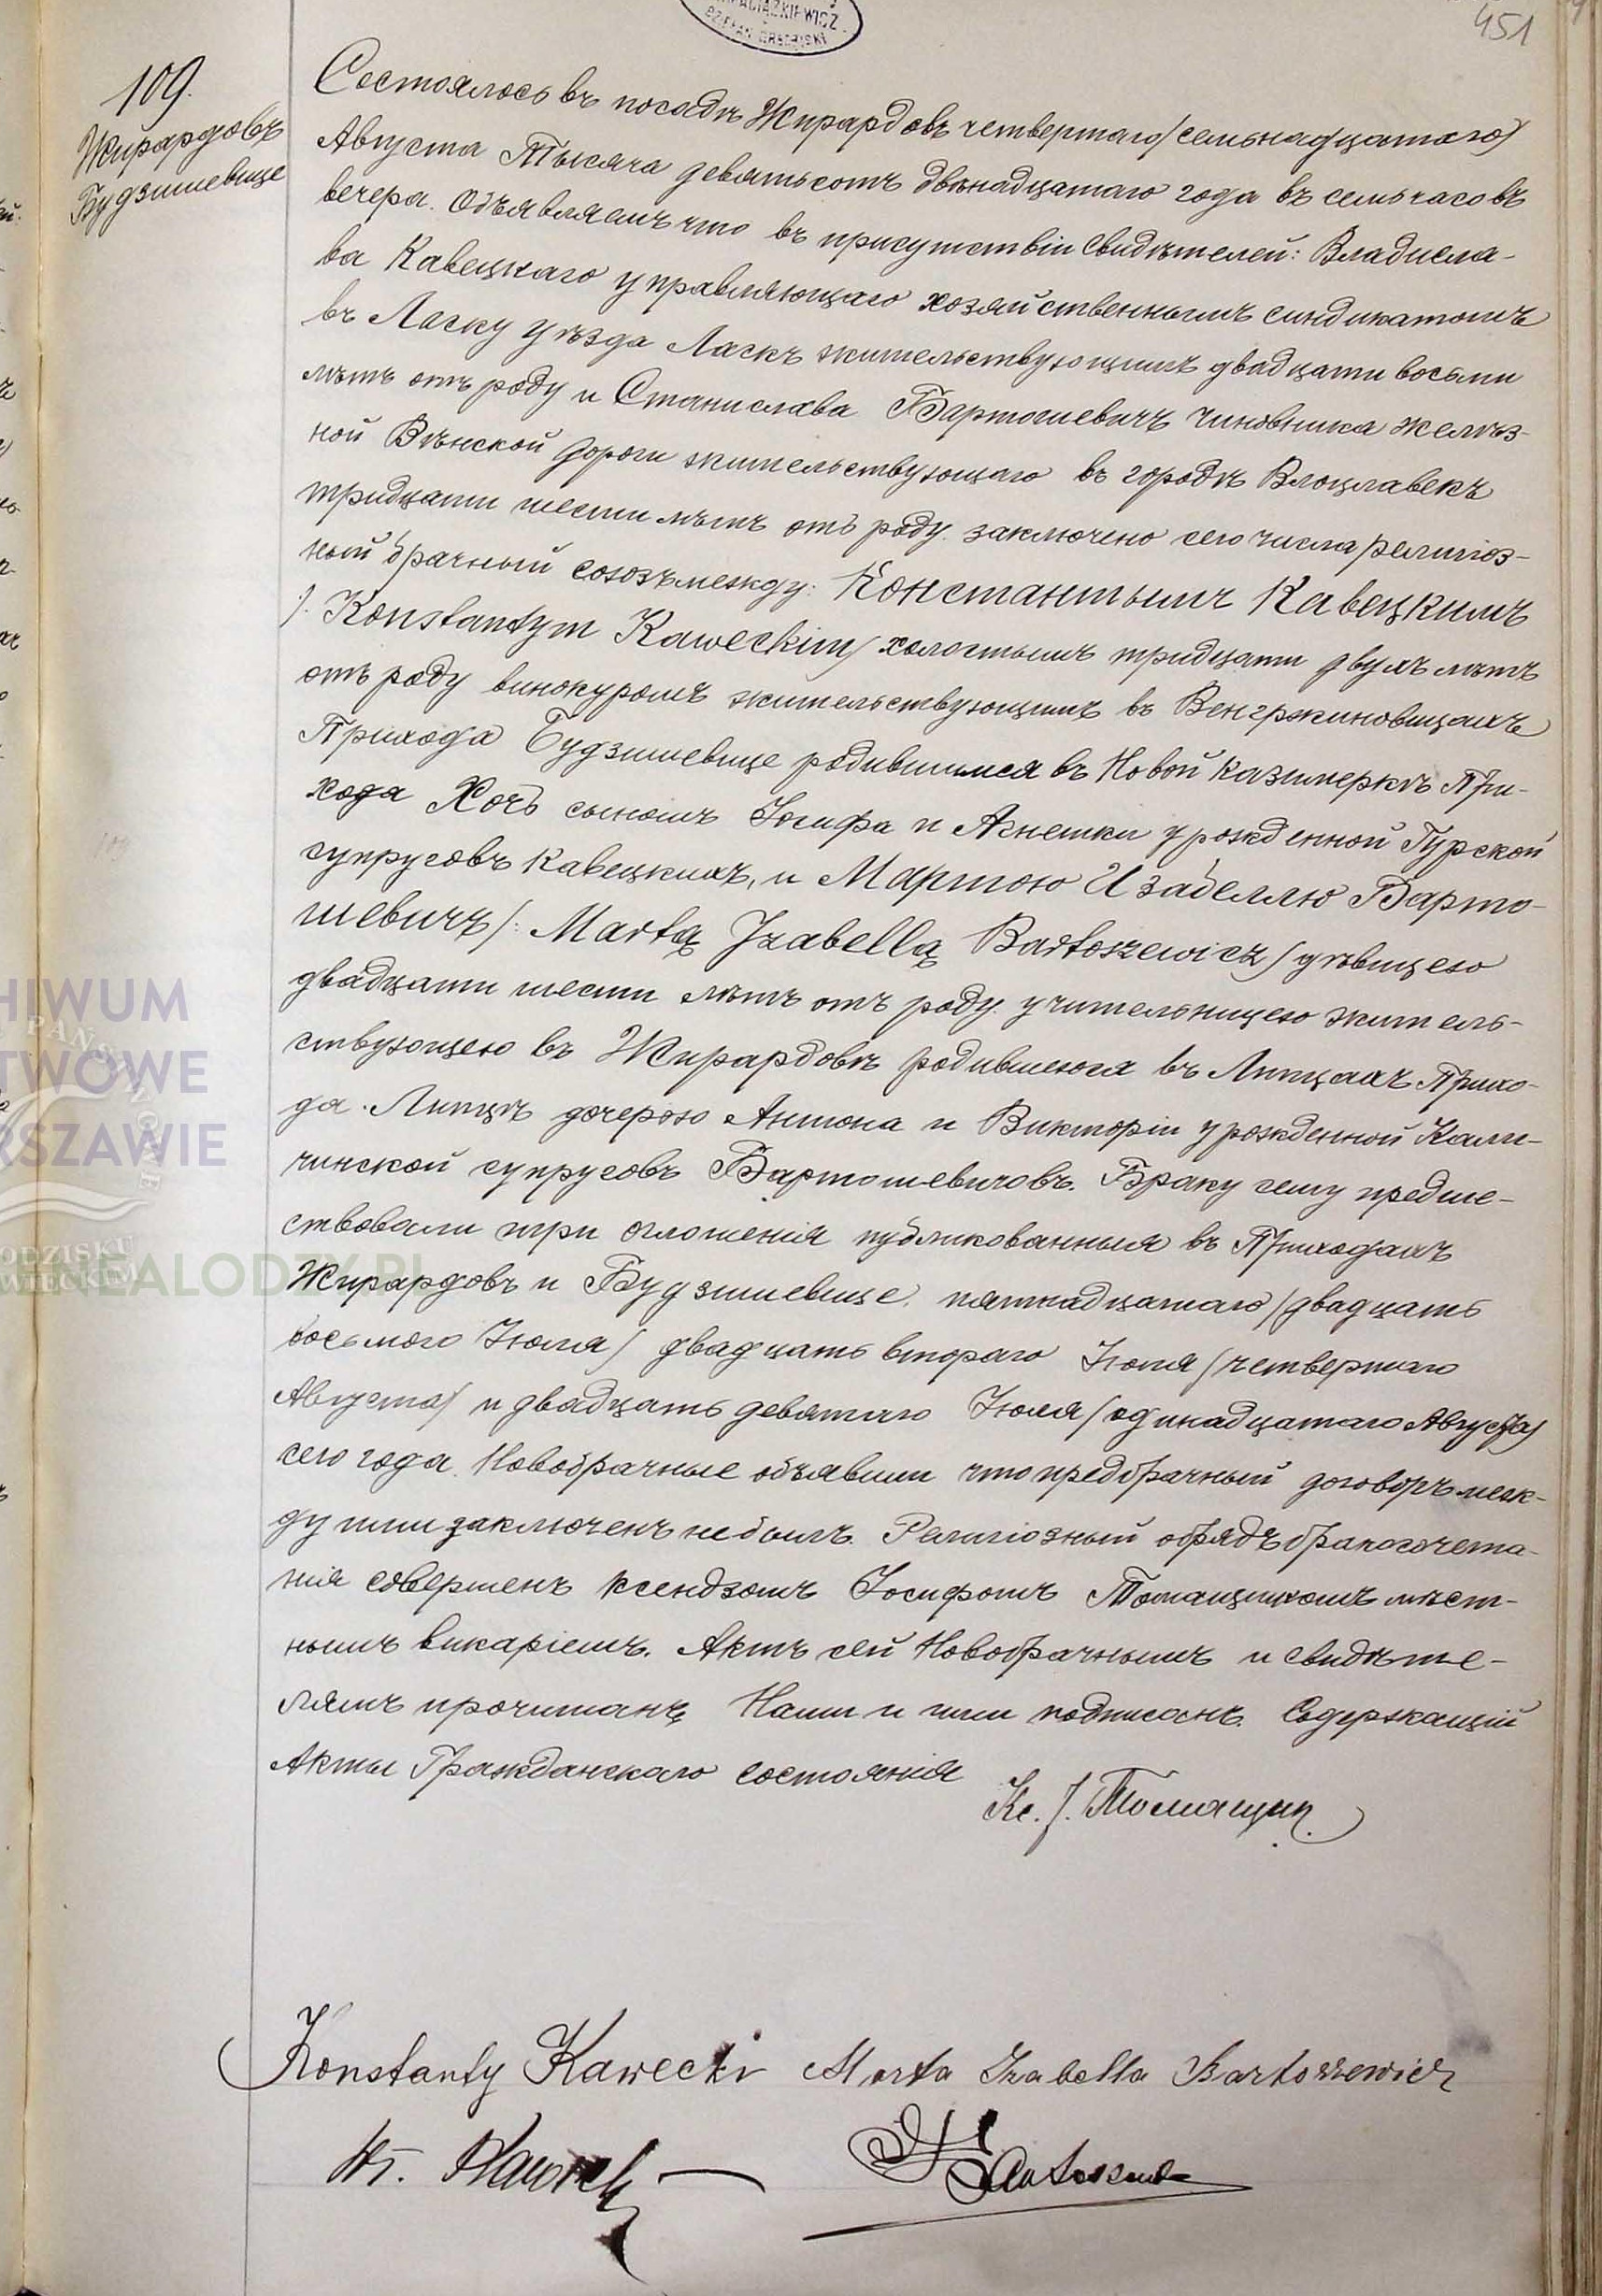 451
109.
Жирардовъ
Будзишевице
Состоялось въ посадѣ Жирардовъ четвертаго /семьнадцатаго/
Августа Тысяча девятьсотъ двѣнадцатаго года въ семь часовъ
вечера. Объявляемъ что въ присутствіи Свидѣтелей: Владисла-
ва Кавецкаго управляющаго хозяйственнымъ синдикатомъ
въ Ласку уѣзда Ласкъ жительствующимъ двадцати восьми
лѣтъ отъ роду и Станислава Бартошевичъ чиновника желѣз-
ной Вѣнской дороги жительствующаго въ городѣ Влоцлавекъ
тридцати шести лѣтъ отъ роду. заключено сего числа религіоз-
ный брачный союзъ между: Константымъ Кавецкимъ
/: Konstantym Kaweckim/ холостымъ тридцати двухъ лѣтъ
отъ роду винокуромъ жительствующимъ въ Венгржиновицахъ
Прихода Будзишевице родившимся въ Новой Казимеркѣ При-
хода Хочъ сыномъ Іосифа и Агнешки урожденной Гурской
супруговъ Кавецкихъ, и Мартою Изабеллю Барто-
шевичъ /: Martą Izabellą Bartoszewicz/ дѣвицею
двадцати шести лѣтъ отъ роду учительницею житель-
ствующею въ Жирардовѣ родившеюся въ Липцахъ Прихо-
да Липцѣ дочерою Антона и Викторіи урожденной Кали-
чинской супруговъ Бартошевичовъ. Браку сему предше-
ствовали три оглошенія публикованныя въ Приходахъ
Жирардовъ и Будзишевице. пятнадцатаго /двадцать
восьмого Іюля/ двадцать втораго Іюля /четвертаго
Августа/ и двадцать девятаго Іюля /одинадцатаго Августа/
сего года. Новобрачные объявили что предбрачный договоръ меж-
ду ими заключенъ не былъ. Религіозный обрядъ бракосочета-
нія совершенъ Ксендзомъ Іосифомъ Томащикомъ мѣст-
нымъ викаріемъ. Актъ сей Новобрачнымъ и свидѣте-
лямъ прочитанъ Нами и ими подписанъ. Содержащій
Акты Гражданскаго состоянія
Кс. J. Томащик
Konstanty Kawecki Marta Izabella Bartoszewicz
Wł. Kawecki
Bartoszewicz
ARCHIWUM
PAŃSTWOWE
W WARSZAWIE
GENEALODZY.PL